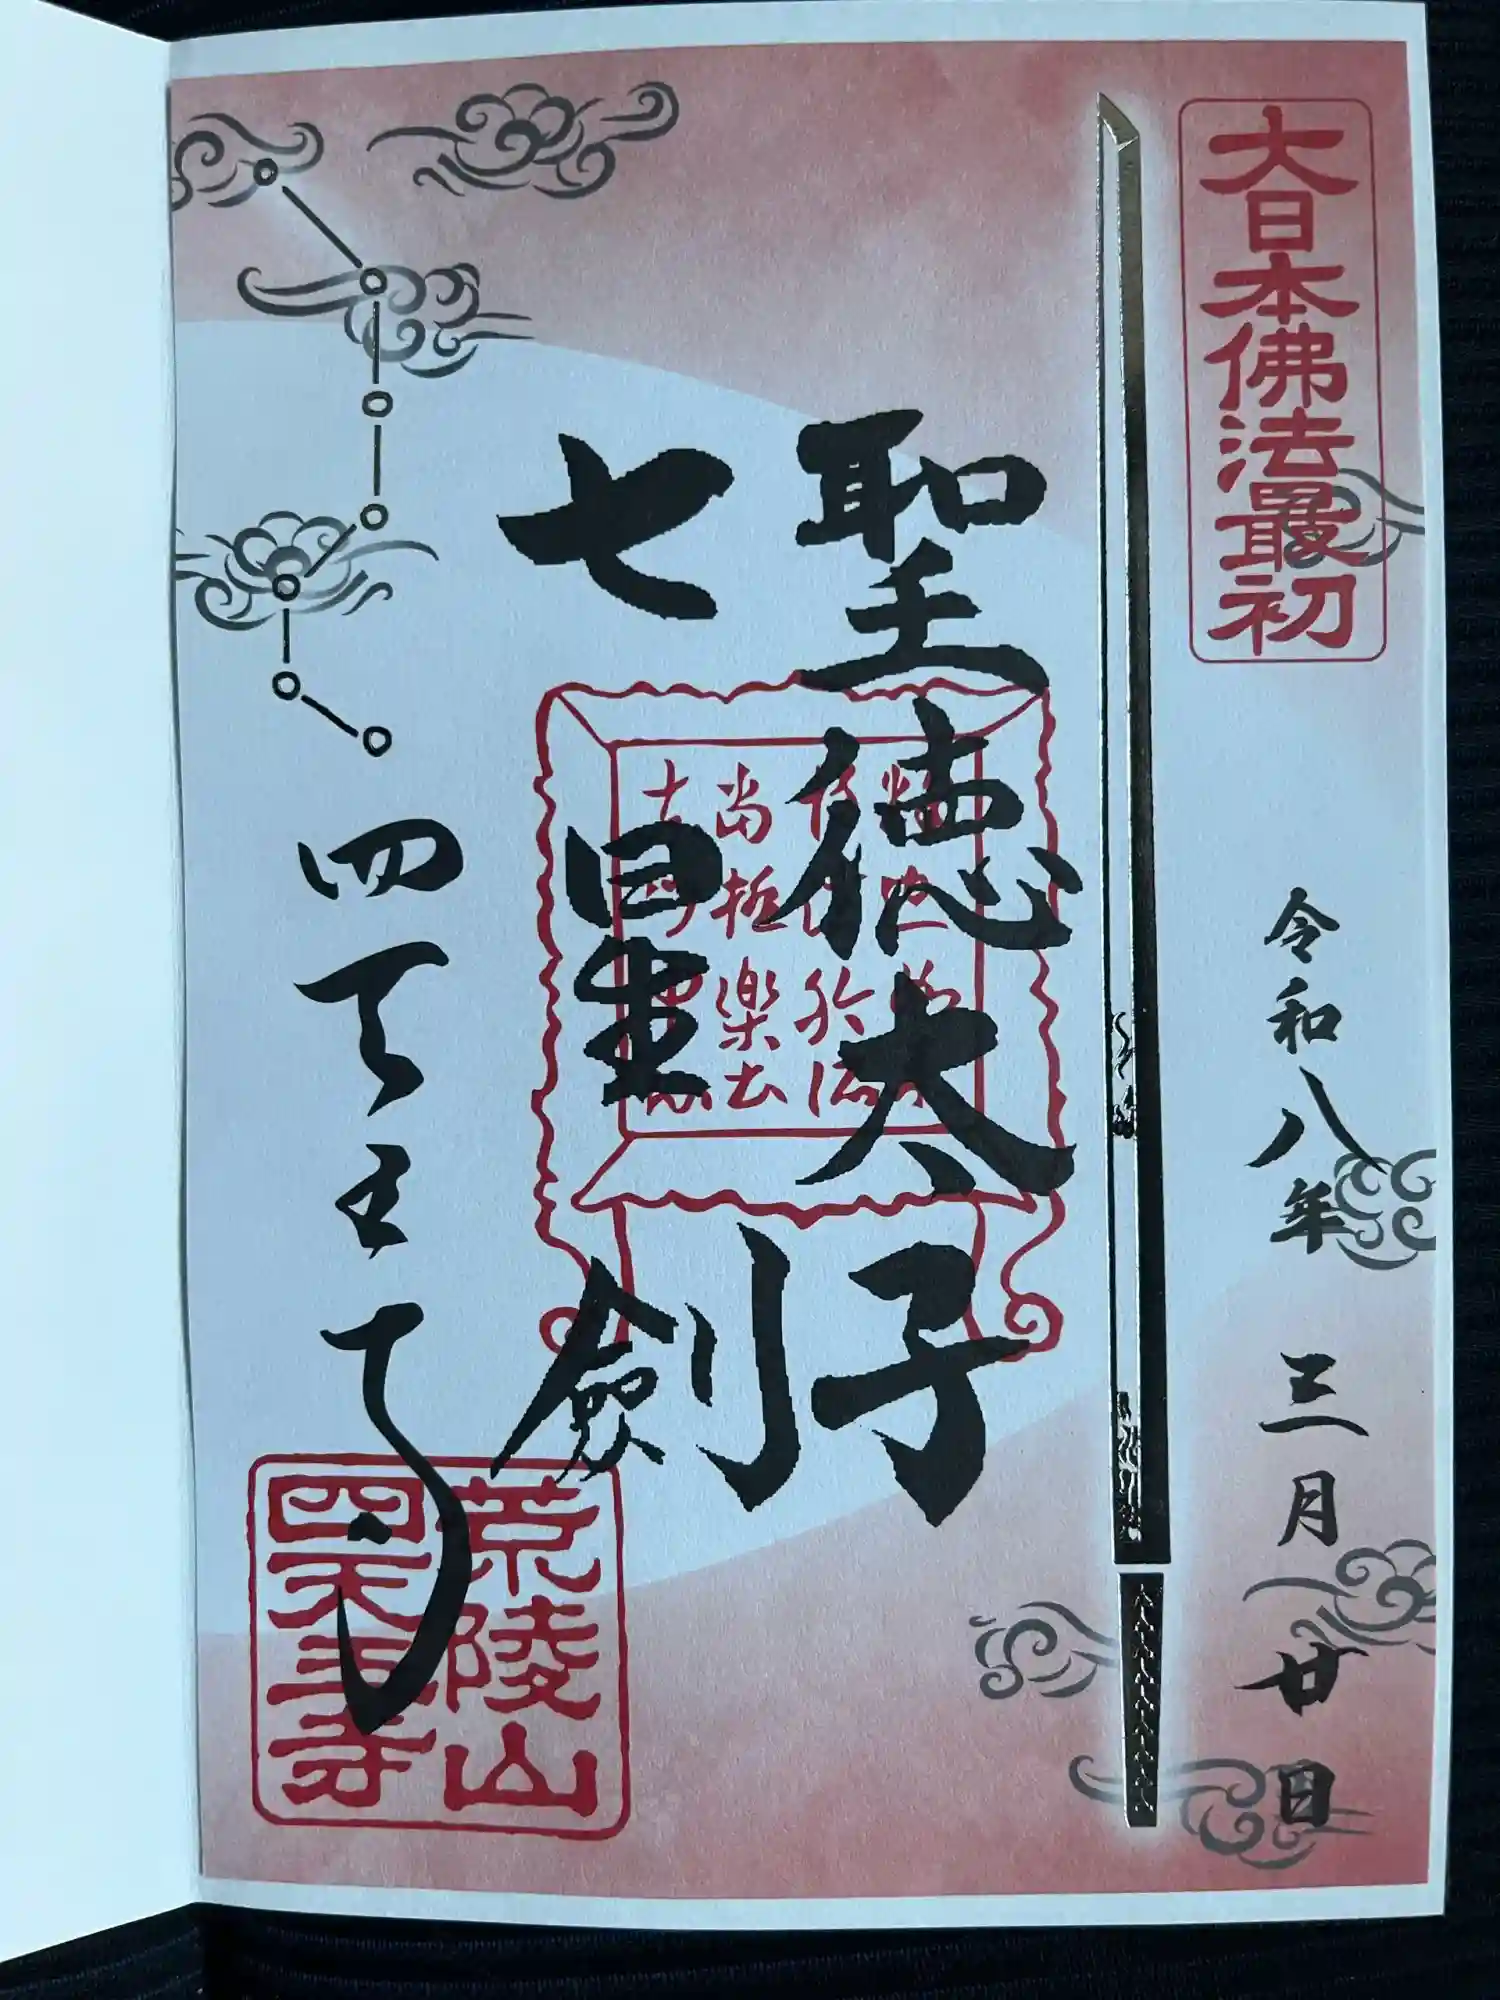 大日本佛法最初
令和八年 三月廿日
聖徳太子
七星劍
四天王寺
荒陵山
四天王寺